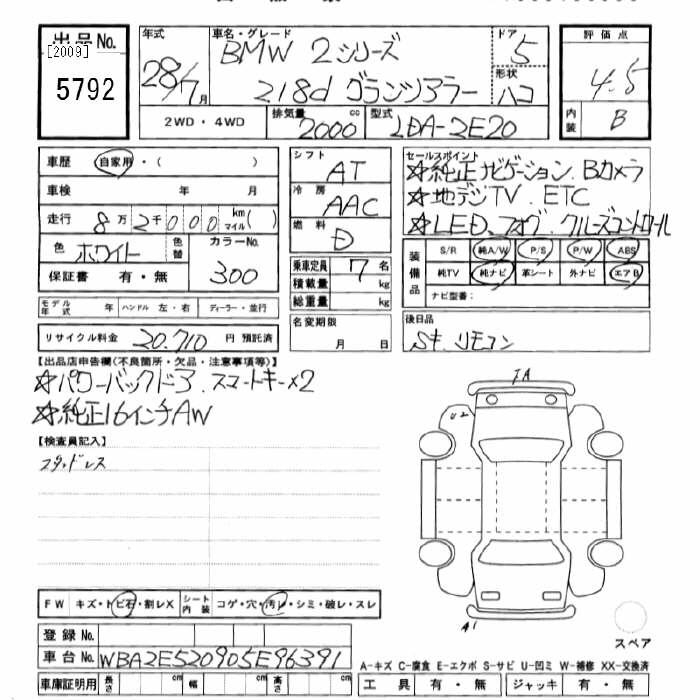 出品No.
[2009]
5792
年式
28/7月
車名・グレード
BMW 2シリーズ
218d グランツアラー
ドア
5
形状
ハコ
2WD・4WD
排気量 2000 cc
型式 LDA-2E20
評価点
4.5
内装 B
車歴 自家用・( )
車検 年 月
走行 8万2千000 km マイル( )
色 ホワイト 色替
カラーNo. 300
保証書 有・無
モデル年式 年 ハンドル 左・右 ディーラー・並行
リサイクル料金 20.710 円 預託済
シフト AT
冷房 AAC
燃料 D
乗車定員 7 名
積載量 kg
総重量 kg
名変期限
月 日
セールスポイント
☆純正ナビゲーション.Bカメラ
☆地デジTV.ETC
☆LED.フォグ.クルーズコントロール
装備品
S/R 純A/W P/S P/W ABS
純TV 純ナビ 革シート 外ナビ エアB
ナビ型番:
後日品
Sキ.リモコン
【出品店申告欄(不良箇所・欠品・注意事項等)】
☆パワーバックドア.スマートキー×2
☆純正16インチAW
【検査員記入】
スタッドレス
FW キズ・トビ石・割レX
シート内装 コゲ・穴・汚レ・シミ・破レ・スレ
登録No.
車台No. WBA2E520905E96391
車庫証明用 長さ cm 幅 cm 高さ cm
U2
A1
スペア
A-キズ C-腐食 E-エクボ S-サビ U-凹ミ W-補修 XX-交換済
工具 有・無 ジャッキ 有・無